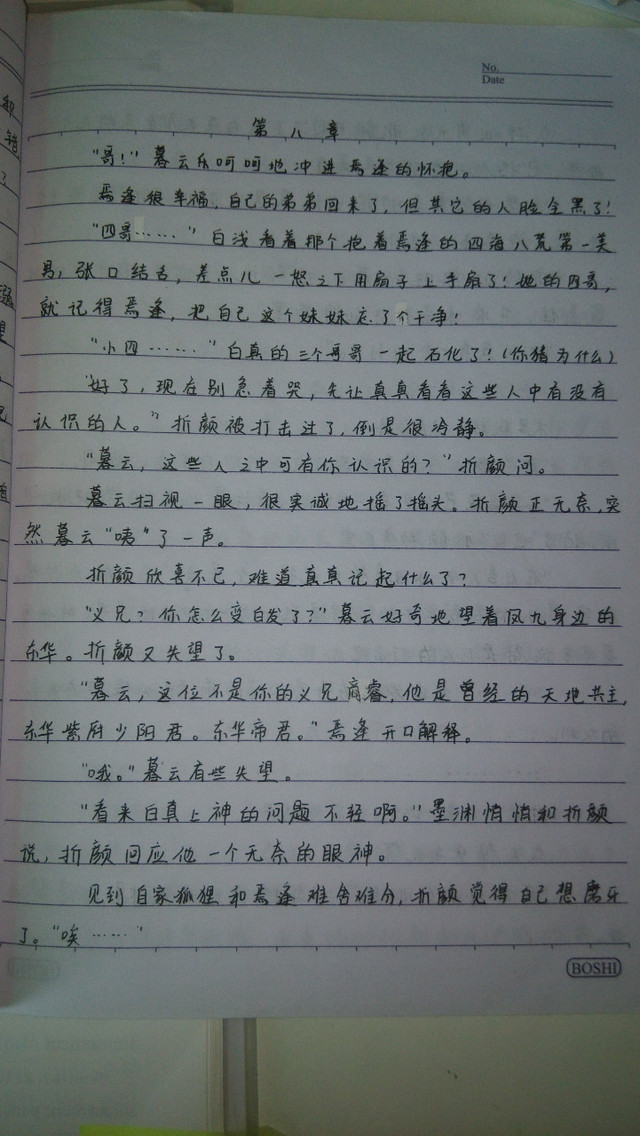 No.
Date
第八章
"哥!"暮云乐呵呵地冲进焉逢的怀抱。
焉逢很幸福,自己的弟弟回来了,但其它的人脸全黑了!
"四哥……"白浅看着那个抱着焉逢的四海八荒第一美
男,张口结舌,差点儿一怒之下用扇子上手扇了!她的四哥,
就记得焉逢,把自己这个妹妹忘了个干净!
"小四……"白真的三个哥哥一起石化了!(你猜为什么)
"好了,现在别急着哭,先让真真看看这些人中有没有
认识的人。"折颜被打击过了,倒是很冷静。
"暮云,这些人之中可有你认识的?"折颜问。
暮云扫视一眼,很实诚地摇了摇头。折颜正无奈,突
然暮云"咦"了一声。
折颜欣喜不已,难道真真记起什么了?
"义兄?你怎么变白发了?"暮云好奇地望着凤九身边的
东华。折颜又失望了。
"暮云,这位不是你的义兄商睿,他是曾经的天地共主,
东华紫府少阳君。东华帝君。"焉逢开口解释。
"哦。"暮云有些失望。
"看来白真上神的问题不轻啊。"墨渊悄悄和折颜
说,折颜回应他一个无奈的眼神。
见到自家狐狸和焉逢难舍难分,折颜觉得自己想磨牙
了。"唉……"
BOSHI